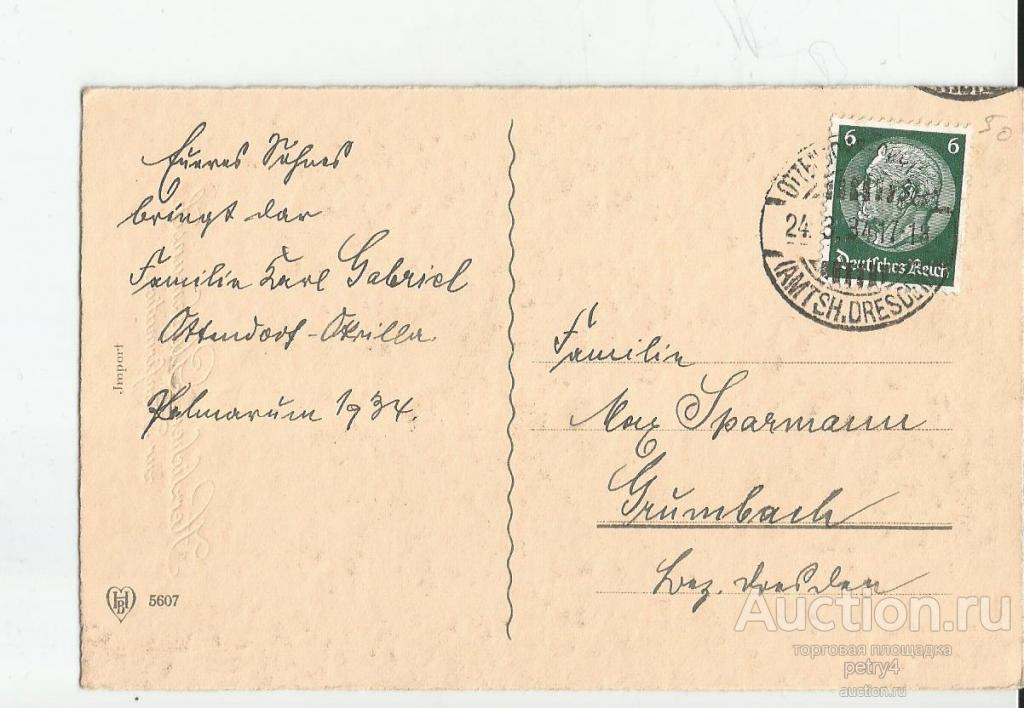 Eueres Sohnes
bringt dar
Familie Karl Gabriel
Ottendorf-Okrilla
Palmarum 1934.
Import
5607
6 6
Deutsches Reich
24. 3. 34. 17-18
(AMTSH. DRESDEN)
50
Familie
Max Sparmann
Grumbach
Bez. Dresden
Auction.ru
торговая площадка
petry4
auction.ru